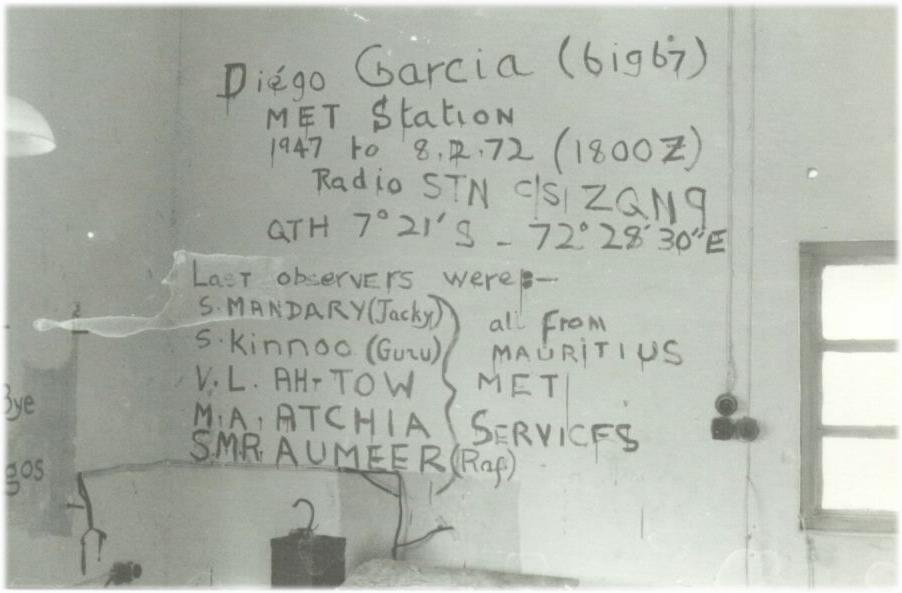 Diégo Garcia (61967)
MET Station
1947 to 8.12.72 (1800Z)
Radio STN C/S ZQN9
QTH 7° 21' S - 72° 28' 30" E
Last observers were:-
S. MANDARY (Jacky)
S. Kinnoo (Guru)
V. L. AH-TOW
M. A. ATCHIA
S.M.R. AUMEER (Raf)
all from
MAURITIUS
MET
SERVICES
Bye